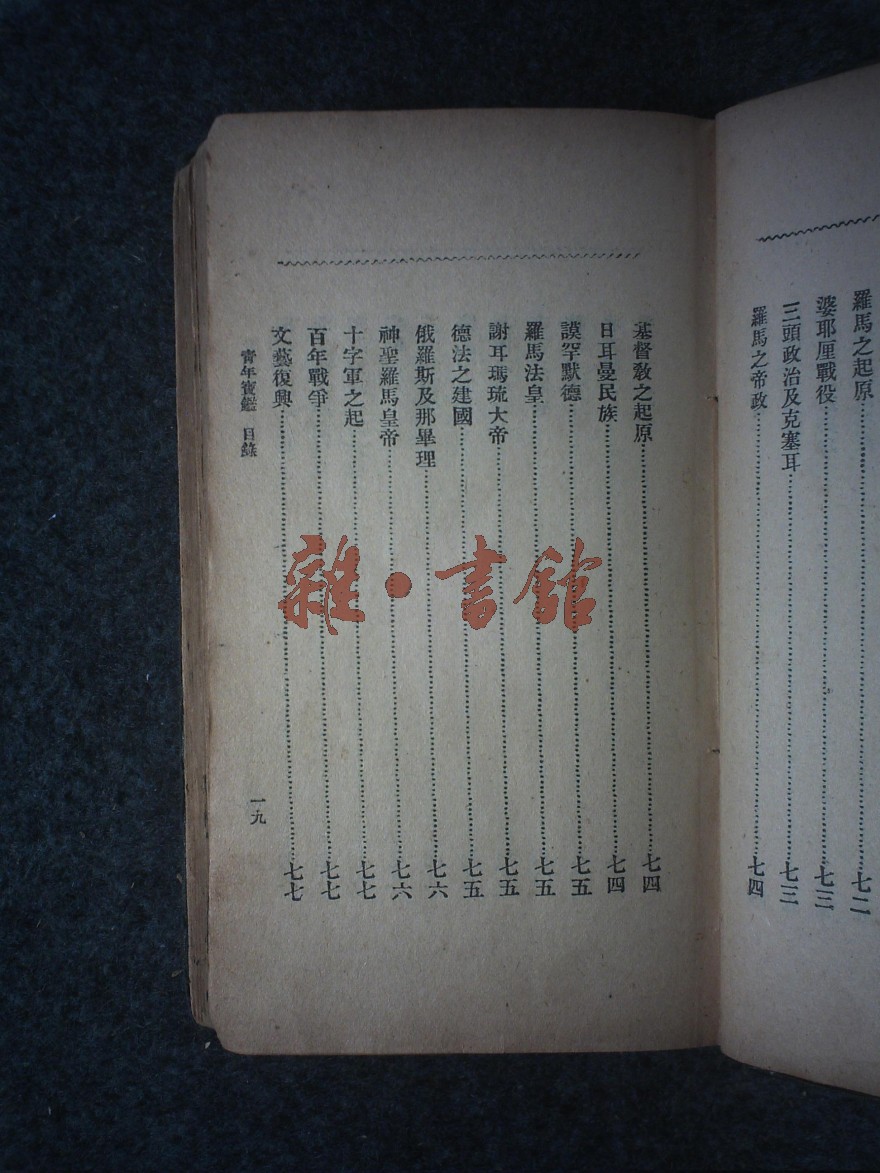 羅馬之起原……七二
婆耶厘戰役……七三
三頭政治及克塞耳……七三
羅馬之帝政……七四
基督教之起原……七四
日耳曼民族……七四
謨罕默德……七五
羅馬法皇……七五
謝耳瑪琉大帝……七五
德法之建國……七五
俄羅斯及那畢理……七六
神聖羅馬皇帝……七六
十字軍之起……七七
百年戰爭……七七
文藝復興……七七
青年寶鑑 目錄
一九
雜·書館